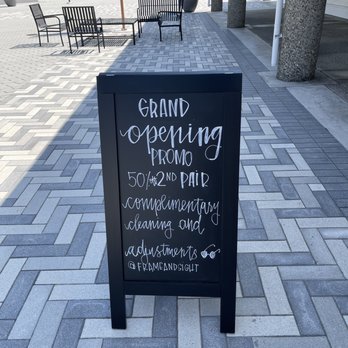 GRAND
opening
PROMO
50% 2ND PAIR
complimentary
cleaning and
adjustments
@FRAMEANDSIGHT